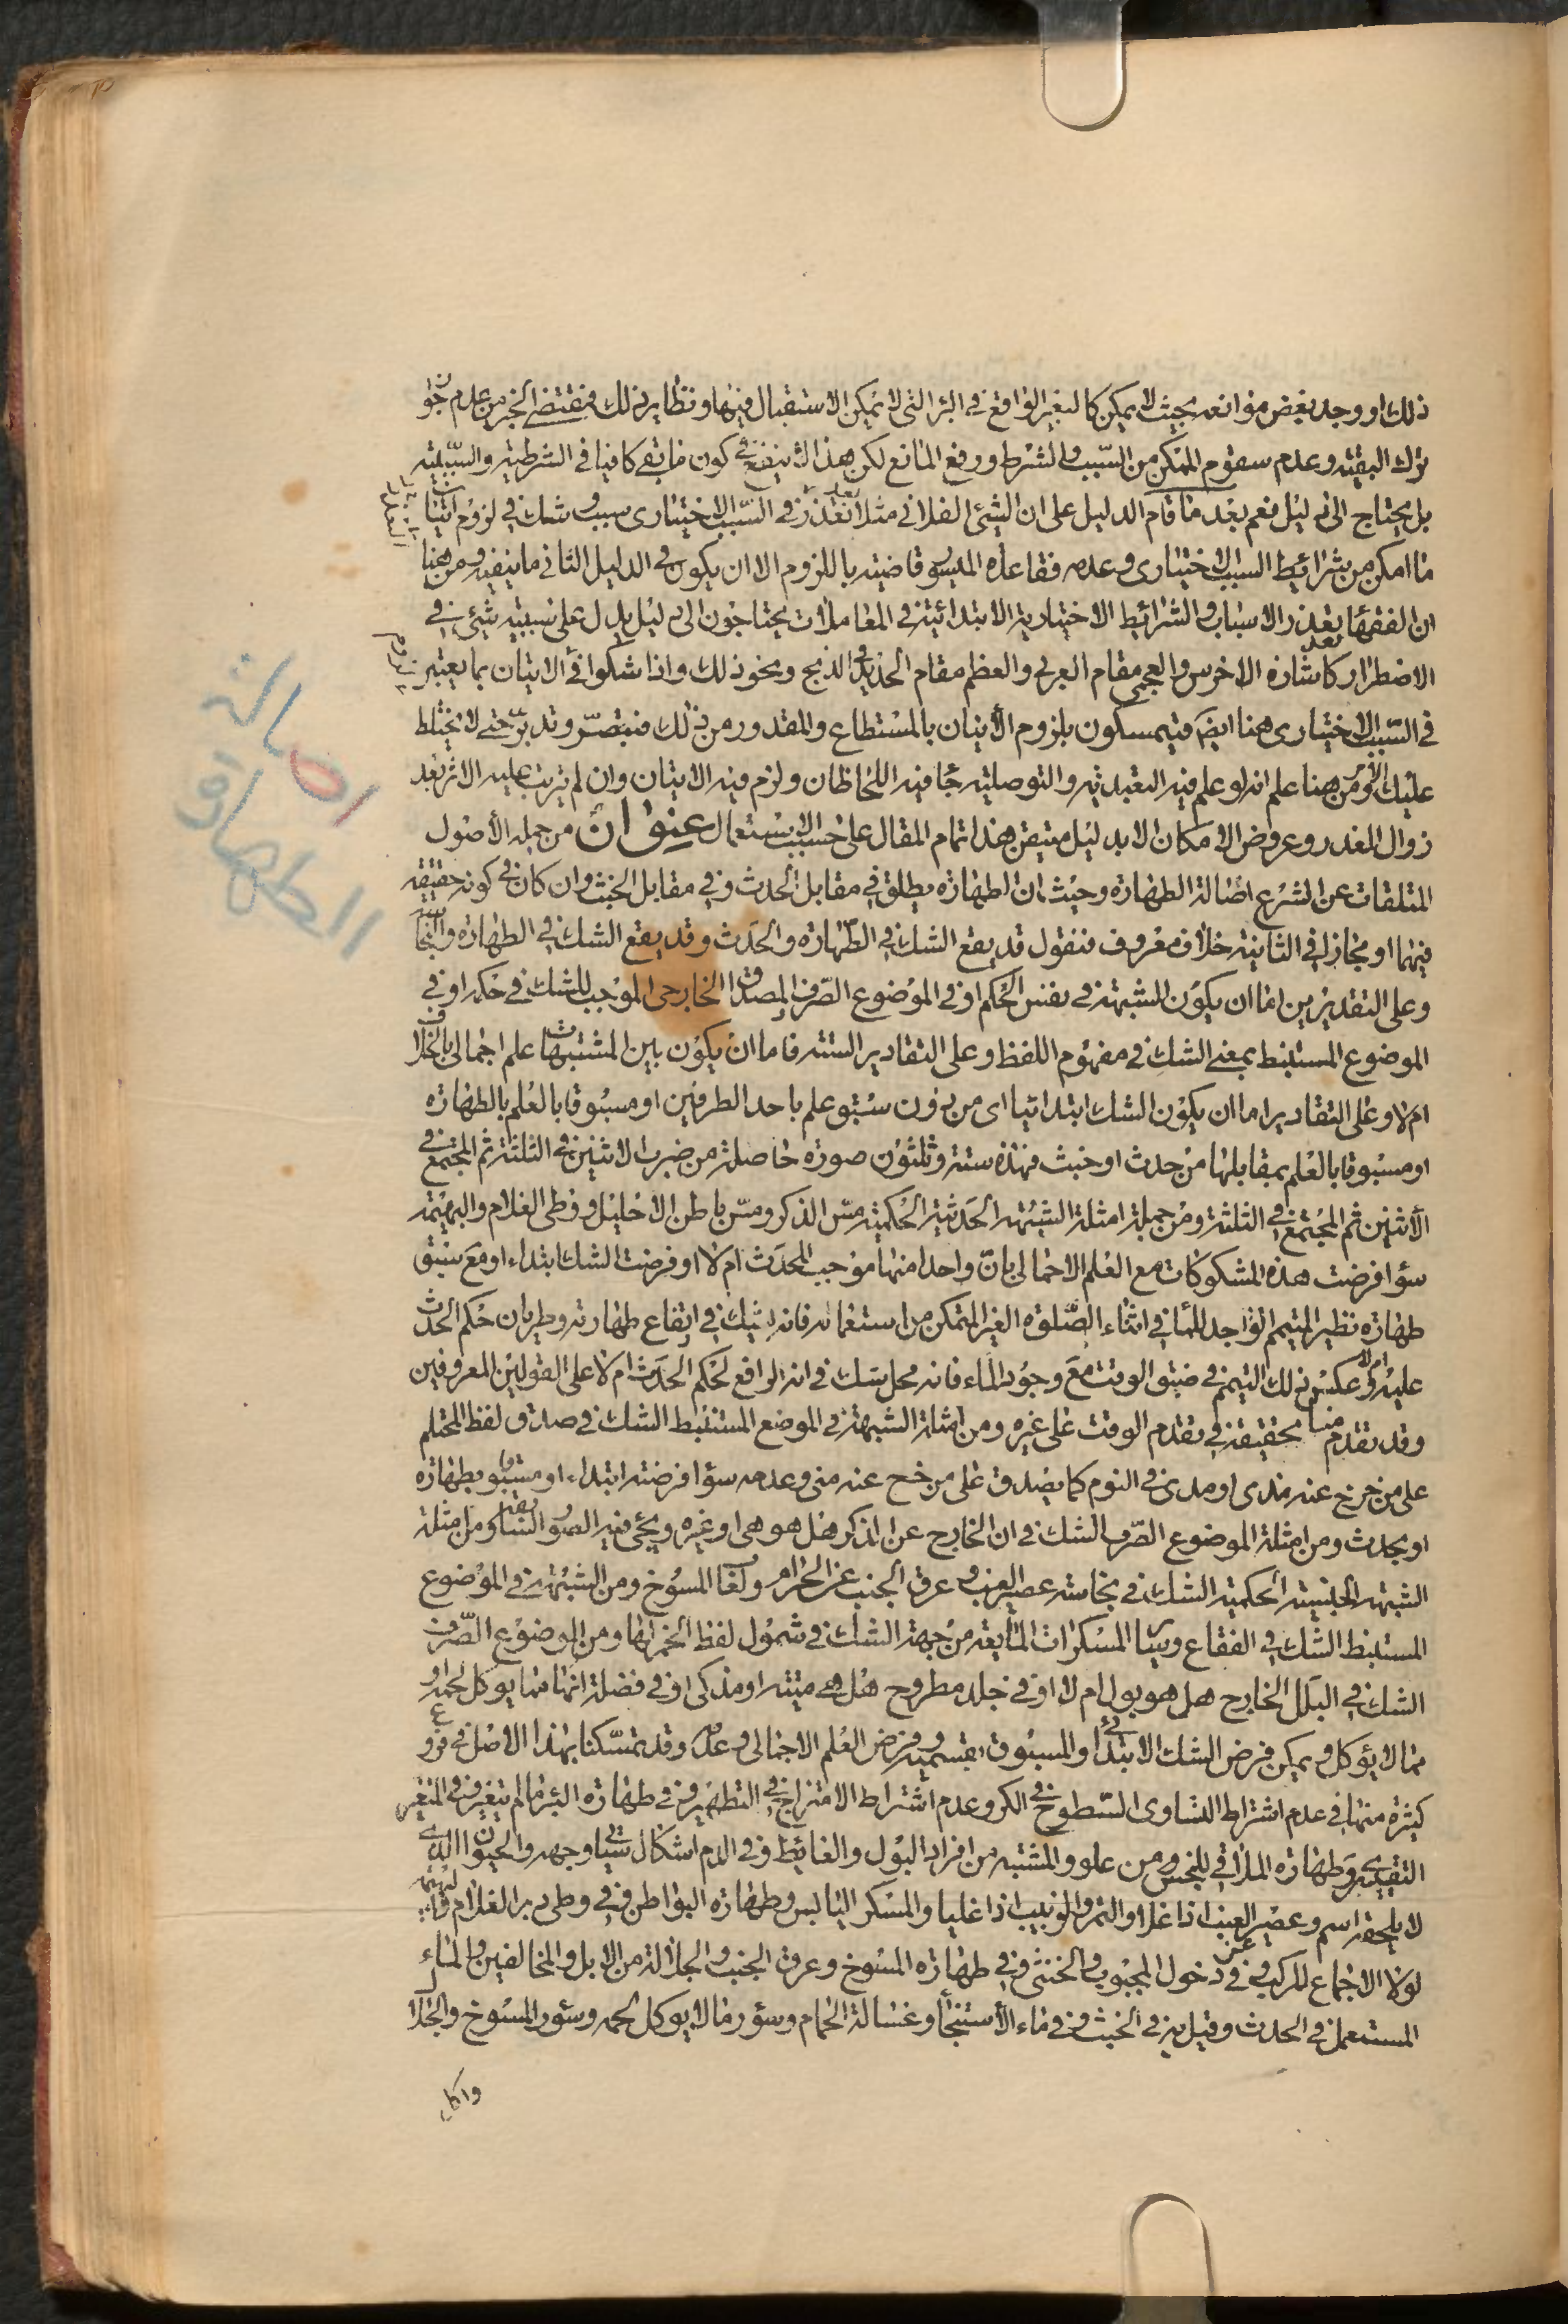 ذلك او وجد بعض موانعه بحيث لا يمكن كالبعير الواقع في البئر التي لا يمكن الاستقبال فيها ونظاير ذلك فمقتضى الخبر من عدم جواز
ترك البقية وعدم سقوط الممكن من السبب والشرط ورفع المانع لكن هذا لا ينفع في كون ما بقي كافيا في الشرطية والسببية
بل يحتاج الى دليل نعم بعد ما قام الدليل على ان الشيء الفلاني مثلا بعد تعذر السبب الاختياري سبب وشك في لزوم اتيان
ما امكن من شرائط السبب الاختياري وعدمه فقاعدة الميسور قاضية باللزوم الا ان يكون في الدليل الثاني ما ينفيه ومن هنا
ان الفقهاء بعد تعذر الاسباب والشرائط الاختيارية الابتدائية في المعاملات يحتاجون الى دليل يدل على سببية شيء في
الاضطرار كاشارة الاخرس والعجمي مقام العربي والعظم مقام الحديد في الذبح ونحو ذلك واذا شكوا في الاتيان بما يعتبر
في السبب الاختياري هنا ايضا فيتمسكون بلزوم الاتيان بالمستطاع والمقدور من ذلك فتبصر وتدبر حتى لا يختلط
عليك الامر ومن هنا علم انه لو علم فيه التعبدية والتوصلية جا فيه اللحاظان ولزم فيه الاتيان وان لم يترتب عليه الاثر بعد
زوال العذر وعروض الامكان الا بدليل متيقن هذا تمام المقال على حسب الاستعمال عنوان من جملة الاصول
المتلقات عن الشرع اصالة الطهارة وحيث ان الطهارة يطلق في مقابل الحدث وفي مقابل الخبث وان كان في كونه حقيقة
فيهما او مجازا في الثانية خلاف معروف فنقول قد يقع الشك في الطهارة والحدث وقد يقع الشك في الطهارة والنجاسة
وعلى التقديرين اما ان يكون الشبهة في نفس الحكم او في الموضوع الصرف المصداق الخارجي الموجب للشك في حكمه او في
الموضوع المستنبط بمعنى الشك في مفهوم اللفظ وعلى التقادير الستة فاما ان يكون بين المشتبهات علم اجمالي بالخلاف
ام لا وعلى التقادير اما ان يكون الشك ابتدائيا اى من دون سبق علم باحد الطرفين او مسبوقا بالعلم بالطهارة
او مسبوقا بالعلم بمقابلها من حدث او خبث فهذه ستة وثلثون صورة حاصلة من ضرب الاثنين في الثلثة ثم المجتمع في
الاثنين ثم المجتمع في الثلثة ومن جملة امثلة الشبهة الحدثية الحكمية مس الذكر ومس باطن الاحليل ووطى الغلام والبهيمة
سواء فرضت هذه المشكوكات مع العلم الاجمالي بان واحدا منها موجب للحدث ام لا او فرضت الشك ابتداء او مع سبق
طهارة نظير المتيمم الواجد للماء في اثناء الصلوة الغير المتمكن من استعماله فانه يشك في ارتفاع طهارته وطريان حكم الحدث
عليه ام لا وعكس ذلك التيمم في ضيق الوقت مع وجود الماء فانه محل شك في انه الرافع لحكم الحدث ام لا على القولين المعروفين
وقد تقدم منا تحقيقه في تقدم الوقت على غيره ومن امثلة الشبهة في الموضع المستنبط الشك في صدق لفظ المحتلم
على من خرج عنه مذى او مدى في النوم كما يصدق على من خرج عنه منى وعدمه سواء فرضته ابتداء او مسبوقا بطهارة
او بحدث ومن امثلة الموضوع الصرف الشك في ان الخارج عن الذكر هل هو هى او غيره ويجئ فيه الصور السابقة ومن امثلة
الشبهة الخبثية الحكمية الشك في نجاسة عصير العنب وعرق الجنب عن الحرام ولعاب المسوخ ومن الشبهة في الموضوع
المستنبط الشك في الفقاع وسائر المسكرات المايعة من جهة الشك في شمول لفظ الخمر لها ومن الموضوع الصرف
الشك في البلل الخارج هل هو بول ام لا او في جلد مطروح هل هي ميتة او مذكى او في فضلة انها مما يوكل لحمه او
مما لا يؤكل ويمكن فرض الشك الابتدائي والمسبوق بقسميه وفرض العلم الاجمالي وعدمه وقد تمسكنا بهذا الاصل في فروع
كثيرة منها في عدم اشتراط التساوى السطوح في الكر وعدم اشتراط الامتزاج في التطهير وفي طهارة البئر ما لم يتغير وفي المتغير
التقديري وطهارة الملاقي للنجس من علو والمشتبه من افراد البول والغائط وفي الدم اشكال سياتي وجهه والحيوان الذي
لا يلحقه اسم وعصير العنب اذا غلا والتمر والزبيب اذا غليا والمسكر اليابس وطهارة البواطن وفي وطى دبر الغلام والبهيمة
لولا الاجماع المركب وفي دخول المجبوب والخنثى وفي طهارة المسوخ وعرق الجنب والجلالة من الابل والمخالفين والماء
المستعمل في الحدث وقيل به في الخبث وفي ماء الاستنجاء وغسالة الحمام وسؤر ما لا يوكل لحمه وسئور المسوخ والجلال
واكل
اصالة
الطهارة